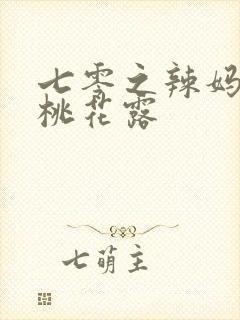 七零之辣妈
桃花露
七萌主